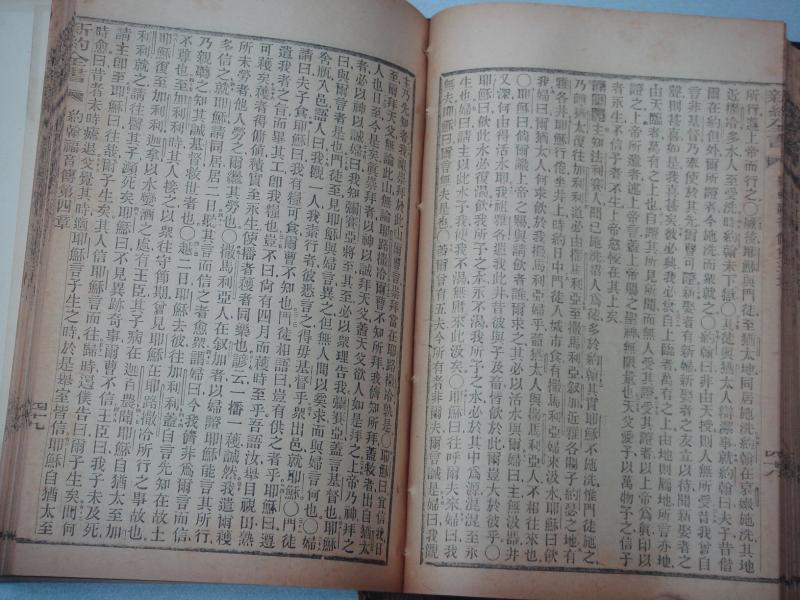 所行遵上帝而行之○厥後耶穌與門徒至猶太地同居施洗約翰在哀嫩施洗其地
近撒冷多水人至受洗時約翰未下獄○其徒與猶太人辯潔事就約翰曰夫子昔偕
爾在約但外爾所證者今施洗而眾就之○約翰曰非由天授則人無所受昔我嘗自
基督乃奉使於其先爾可證娶新婦者有新婦新娶者之友立以待聞新娶者之
聲則甚喜如是我喜甚矣彼必興我必衰自上臨者在萬有之上由地則屬地所言亦地
由天臨者萬有之上也自證其所見所聞而無人受其證受其證者以上帝為真印以
上帝所遣者述上帝言蓋上帝賜之聖神無限量也天父愛子以萬物予之信子
者永生不信子者不生上帝怒恆在其上矣
主知法利賽人聞己施洗招人為徒多於約翰其實耶穌不施洗惟門徒施之
乃離猶太復往加利利道必由撒馬利亞至撒馬利亞敘加近雅各賜子約瑟之地有
雅各井耶穌行倦坐井上時約日中門徒入城市食有撒馬利亞婦來汲水耶穌曰飲
我婦曰爾猶太人何來飲於我撒馬利亞婦乎蓋猶太人與撒馬利亞人不相往來也
耶穌曰爾上帝之賜與請飲者誰爾求之必以活水與爾婦曰主無汲器井
又深何由得活水耶我祖雅各遺我此井昔彼與子及畜皆飲於此爾豈大於彼乎○
耶穌曰飲此水必復渴飲我所予之水永不渴我所予之水必於其中為源混混至永生
婦曰主以此水予我俾我不渴無庸來汲矣○耶穌曰往呼爾夫來婦曰我
無夫耶穌曰是也○爾嘗有五夫今所有者非爾夫爾言誠是婦曰我觀
主乃先知者我祖崇拜於此山爾曹言崇拜當在耶路撒冷孰是○耶穌曰宜信我日
至爾拜天父無論此山無論耶路撒冷爾曹不知所拜我儕知所拜蓋救者出自猶太
人也日至今是矣真崇拜者以神以誠拜天父蓋天父欲人如是拜之上帝乃神拜之
者必以神以誠婦曰我知彌賽亞將至至必以眾理告我彌賽亞蓋言基督也耶穌
曰與爾言者是也門徒至見耶穌與婦言異之但無人問以爰求而與婦言何也○婦
舍瓶入邑語人曰我觀一人我素行者彼悉言之得毋基督乎眾出邑就耶穌○門徒
請曰夫子食耶穌曰我有糧可食爾曹不知也門徒相語曰豈有供之者乎耶穌曰遵
遣我者之旨而畢其工即我糧也豈不曰尚有四月而穫時至乎吾語汝舉目視田熟
可穫矣穫者得傭值積實至永生使播者穫者同樂也諺云一播一穫誠然我遣爾穫
所未勞者他人勞之爾繼其勞也○撒馬利亞人在敘加者以婦證耶穌能言其所行
多信之就耶穌請同居居二日聽其言而信之者愈眾謂婦曰今我儕非為爾言而信
乃親聽之知其誠基督救世者也○越二日耶穌去彼往加利利蓋自言先知在故土
不尊也至加利利時其人接之以眾往守節期嘗見耶穌在耶路撒冷所行之事故也
耶穌復至加利利迦拿以水變酒之處有王臣其子病在迦百農聞耶穌自猶太至加
利利就之請往醫其子瀕死矣耶穌曰不見異跡奇事爾曹不信王臣曰我子未及死
請主即至耶穌曰往哉爾子生矣其人信耶穌言而往歸時遇僕告曰爾子生矣問何
時愈曰昔者未時瘧退父覺其時適耶穌言子生之時於是舉室皆信耶穌自猶太至
新約全書 約翰福音傳第四章 四十七